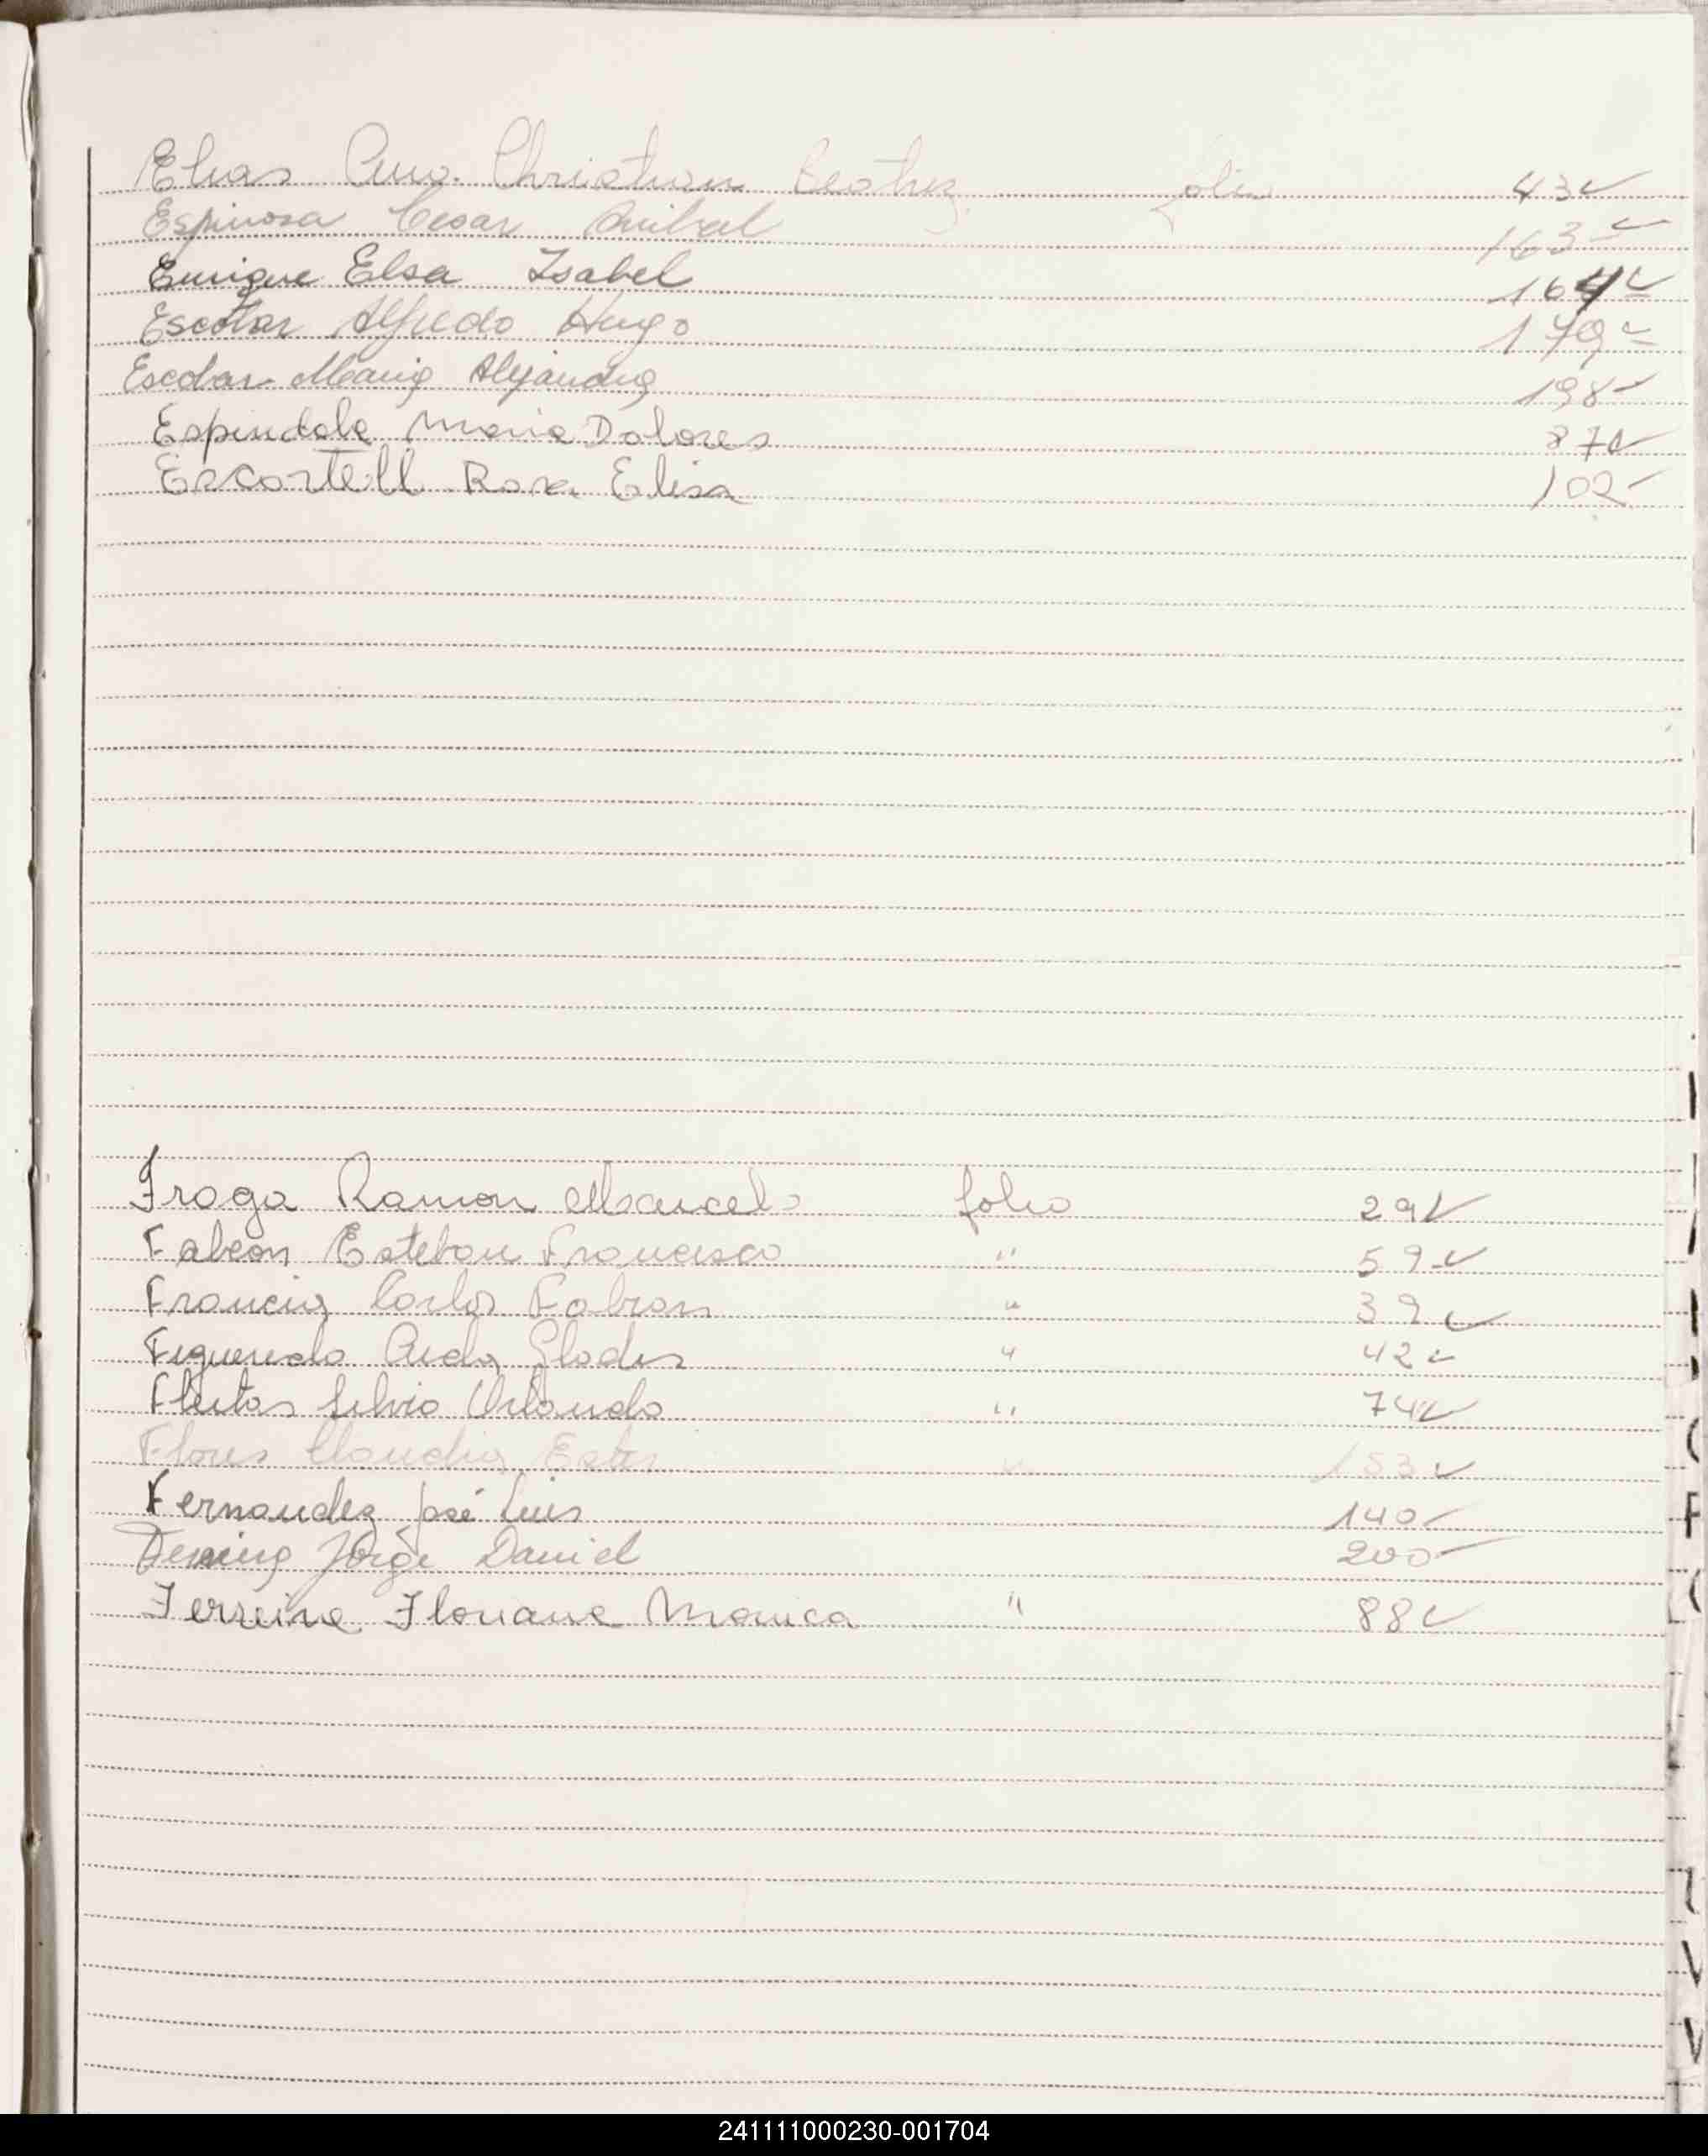 Elias Ana Christian Beatriz folio 43 ✓
Espinosa Cesar Anibal 163 ✓
Enrique Elsa Isabel 164 ✓
Escobar Alfredo Hugo 179 ✓
Escobar Maria Alejandra 198 ✓
Espindola Maria Dolores 87 ✓
Escortell Rosa Elisa 102 ✓
Fraga Ramon Marcelo folio 29 ✓
Esteban Francisco " 59 ✓
Francia Carlos Fabian " 39 ✓
Figueredo Aida Gladis " 42 ✓
Fleitas Silvio Orlando " 74 ✓
Flores Claudia Ester " 153 ✓
Fernandez José Luis 140 ✓
Jorge Daniel 200 ✓
Ferreira Monica " 88 ✓
241111000230-001704